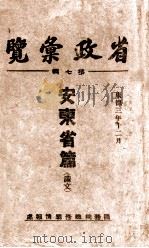 省政彙覽
第七輯
安東省篇
(論文)
康德三年十二月
國務院總務廳情報處